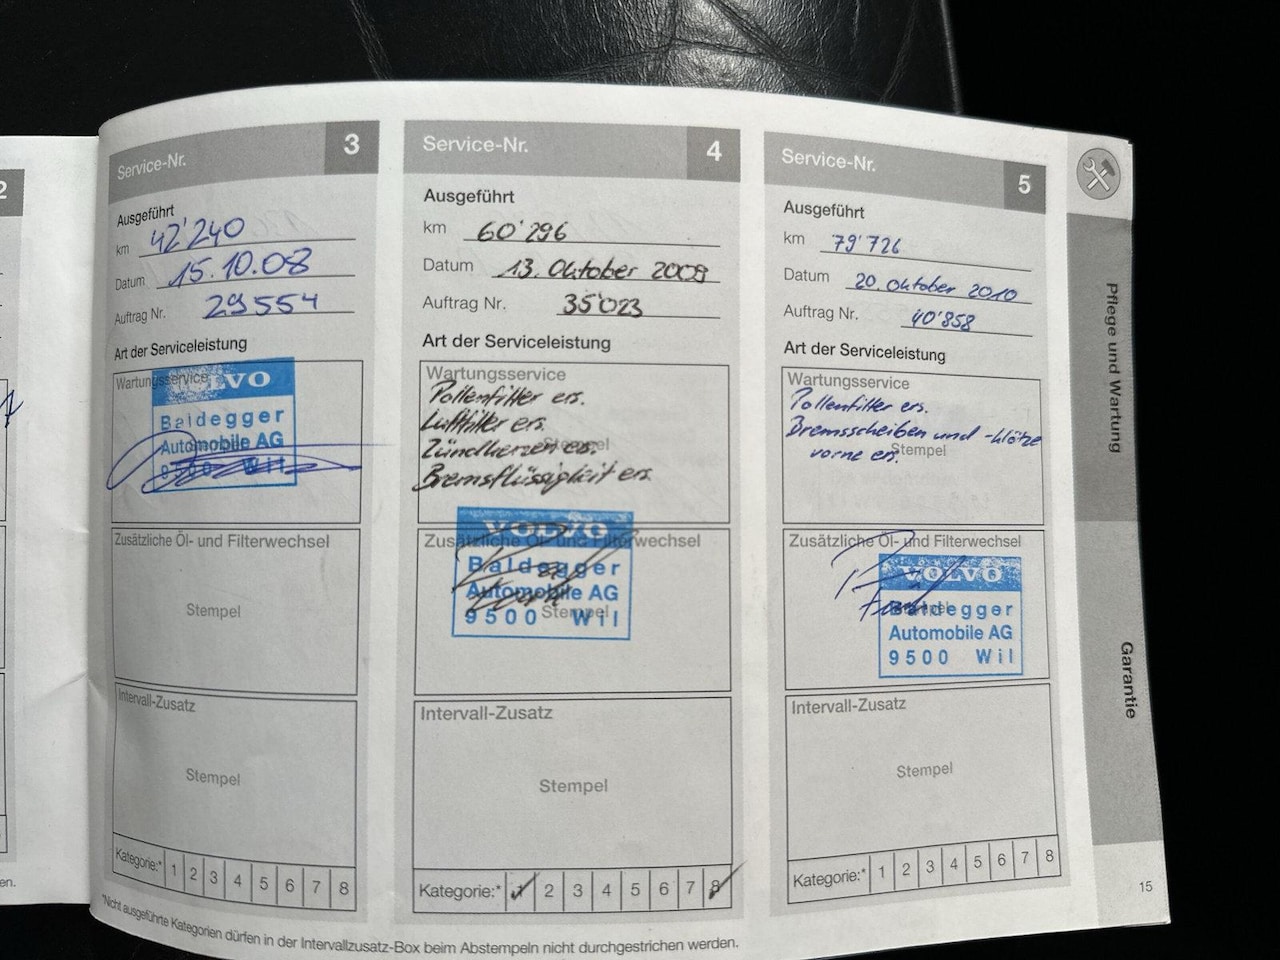 2
en.
Service-Nr. 3
Ausgeführt
km 42'240
Datum 15.10.08
Auftrag Nr. 29554
Art der Serviceleistung
Wartungsservice
VOLVO
Baldegger
Automobile AG
9500 Wil
Zusätzliche Öl- und Filterwechsel
Stempel
Intervall-Zusatz
Stempel
Kategorie:* 1 2 3 4 5 6 7 8
Service-Nr. 4
Ausgeführt
km 60'296
Datum 13. Oktober 2009
Auftrag Nr. 35'023
Art der Serviceleistung
Wartungsservice
Pollenfilter ers.
Luftfilter ers.
Stempel
Zündkerzen ers.
Bremsflüssigkeit ers.
VOLVO
Zusätzliche Öl- und Filterwechsel
Baldegger
Automobile AG
Stempel
9500 Wil
Intervall-Zusatz
Stempel
Kategorie:* 1 2 3 4 5 6 7 8
Service-Nr. 5
Ausgeführt
km 79'726
Datum 20. Oktober 2010
Auftrag Nr. 40'858
Art der Serviceleistung
Wartungsservice
Pollenfilter ers.
Bremsscheiben und -klötze
Stempel
vorne ers.
Zusätzliche Öl- und Filterwechsel
VOLVO
Stempel
Baldegger
Automobile AG
9500 Wil
Intervall-Zusatz
Stempel
Kategorie:* 1 2 3 4 5 6 7 8
*Nicht ausgeführte Kategorien dürfen in der Intervallzusatz-Box beim Abstempeln nicht durchgestrichen werden.
Pflege und Wartung
Garantie
15